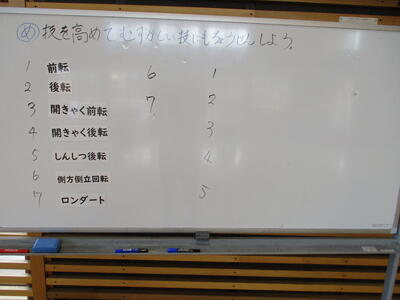 め 技を高めてむずかしい技にもちょうせんしよう。
1 前転 6 1
2 後転 7 2
3 開きゃく前転
4 開きゃく後転 3
5 しんしつ後転 4
6 側方倒立回転
7 ロンダート 5